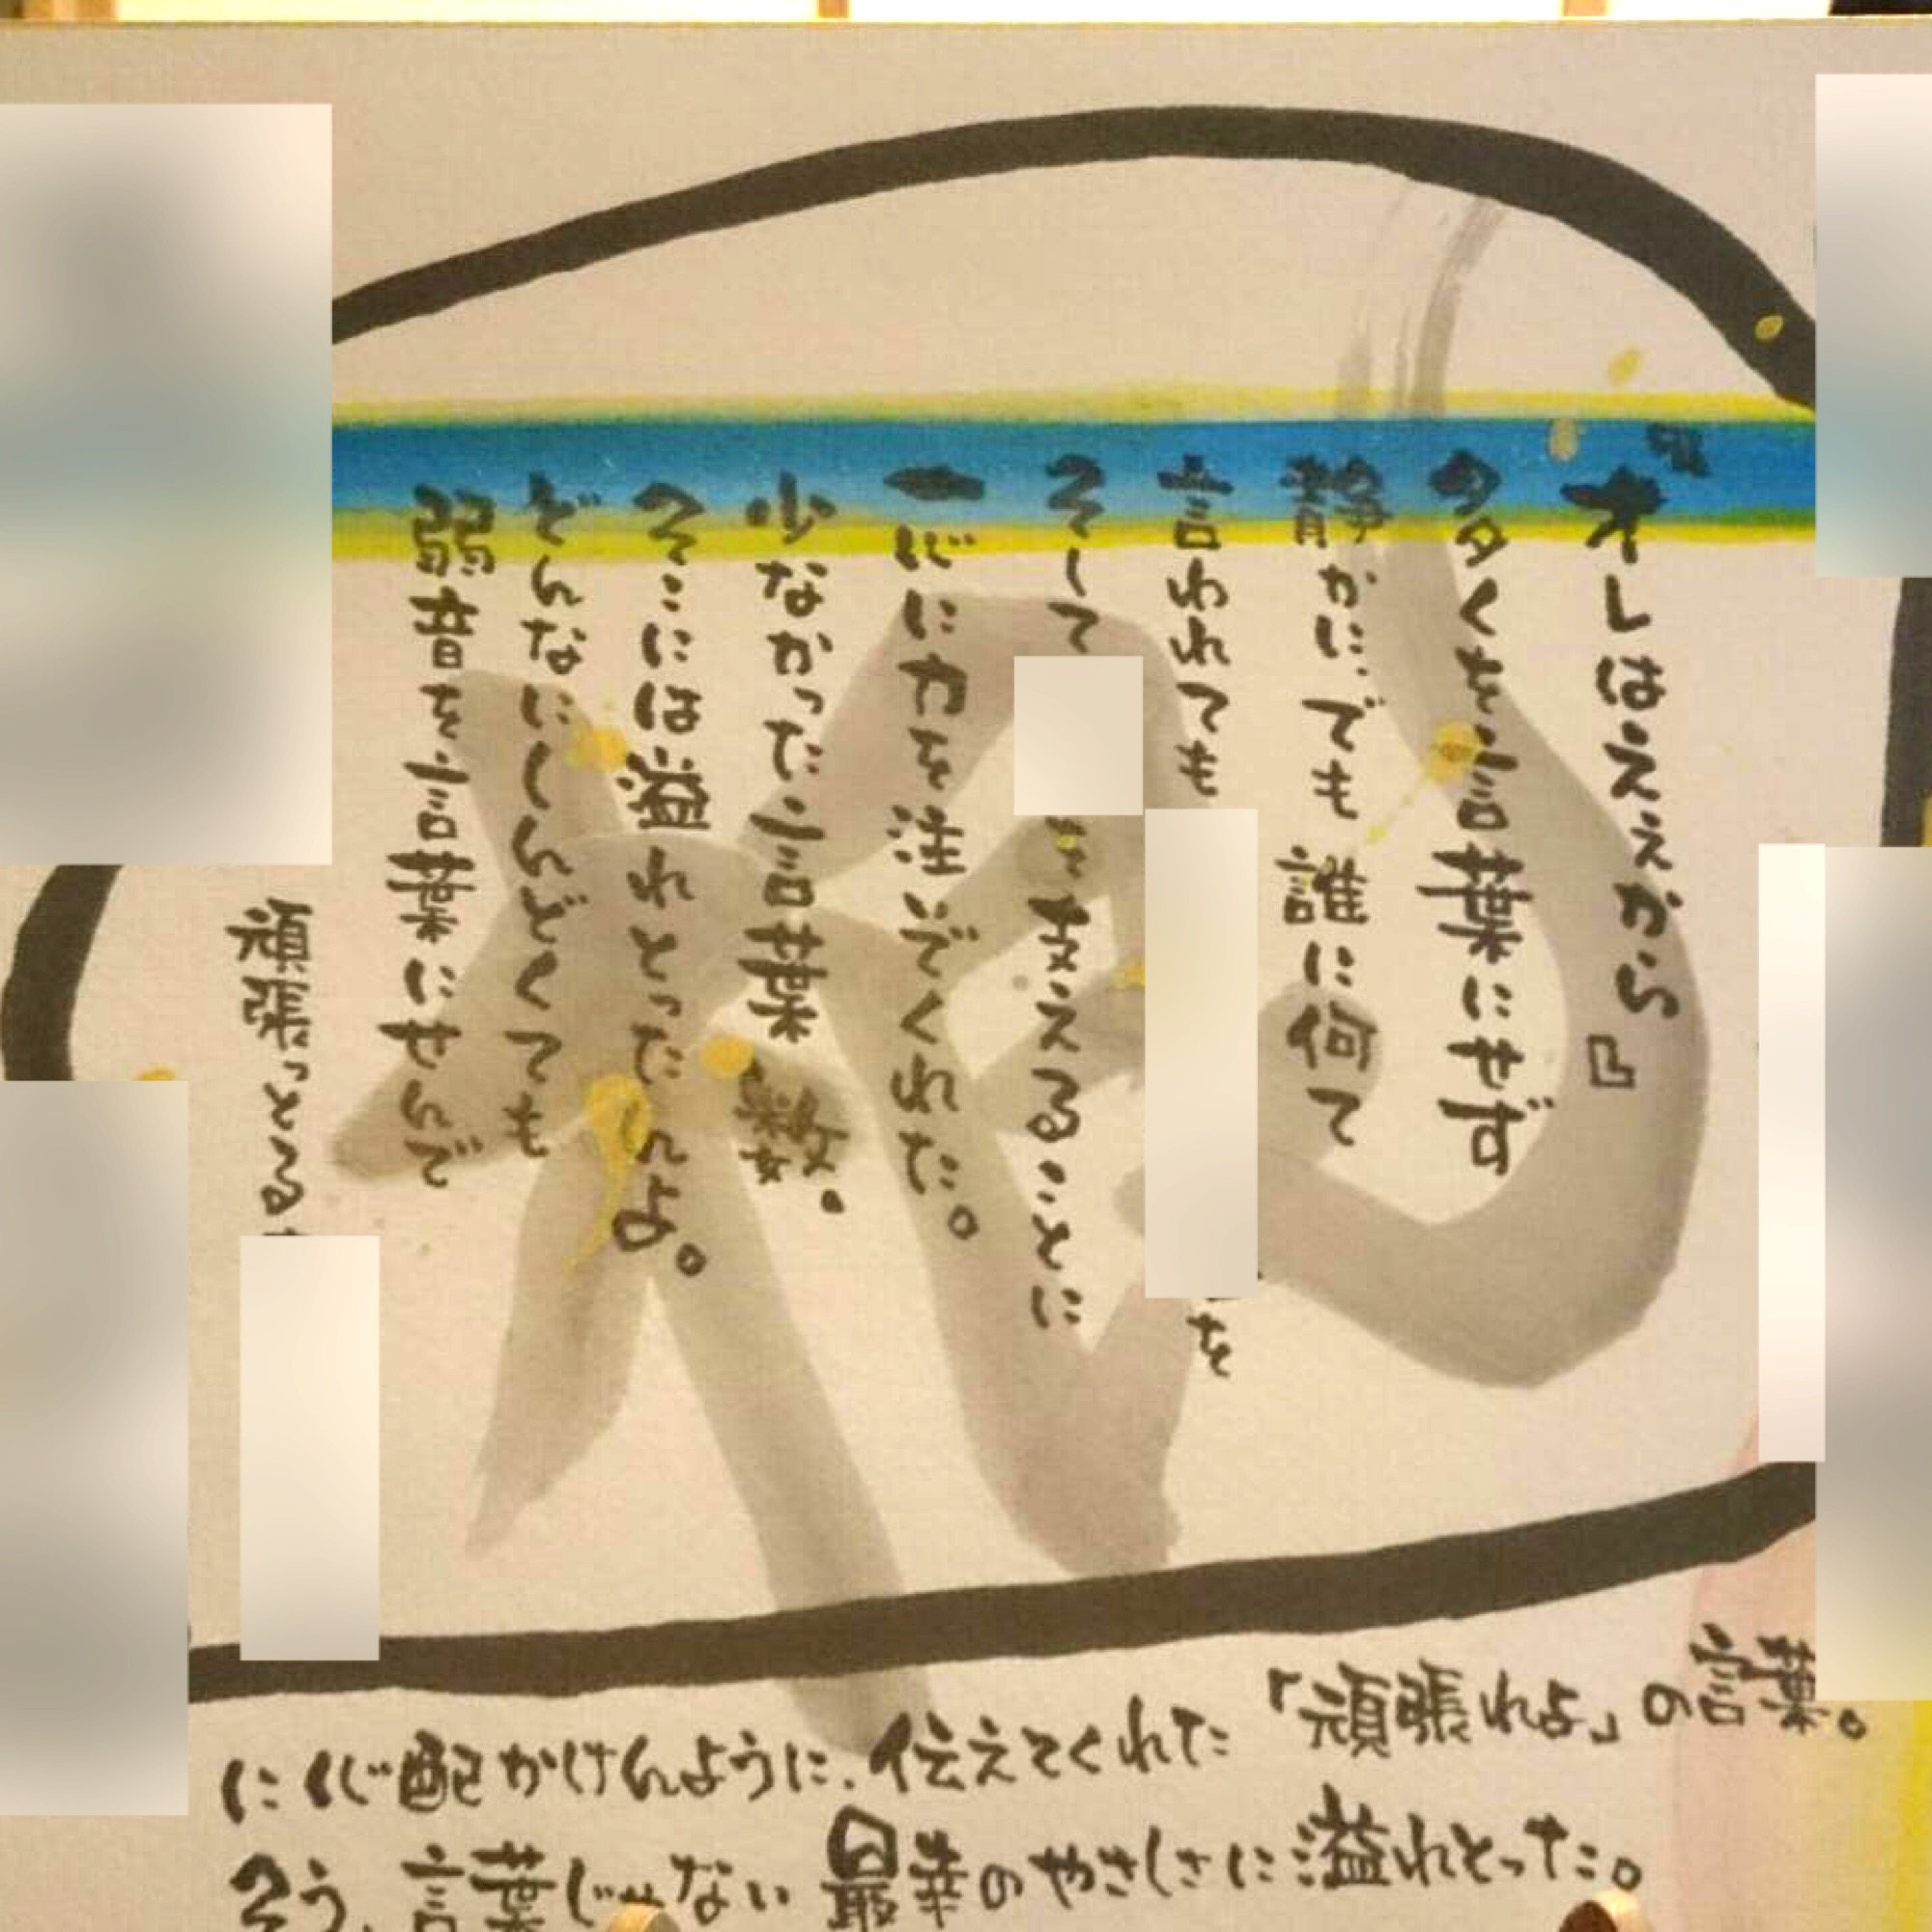 オレはええから』
多くを言葉にせず
静かに、でも誰に何て
言われても
を
そして
支えることに
一心に力を注いでくれた。
少なかった言葉数。
そこには溢れとったんよ。
どんなにしんどくても
弱音を言葉にせんで
頑張っとる
に心配かけんように、伝えてくれた「頑張れよ」の言葉。
そう、言葉じゃない最幸のやさしさに溢れとった。